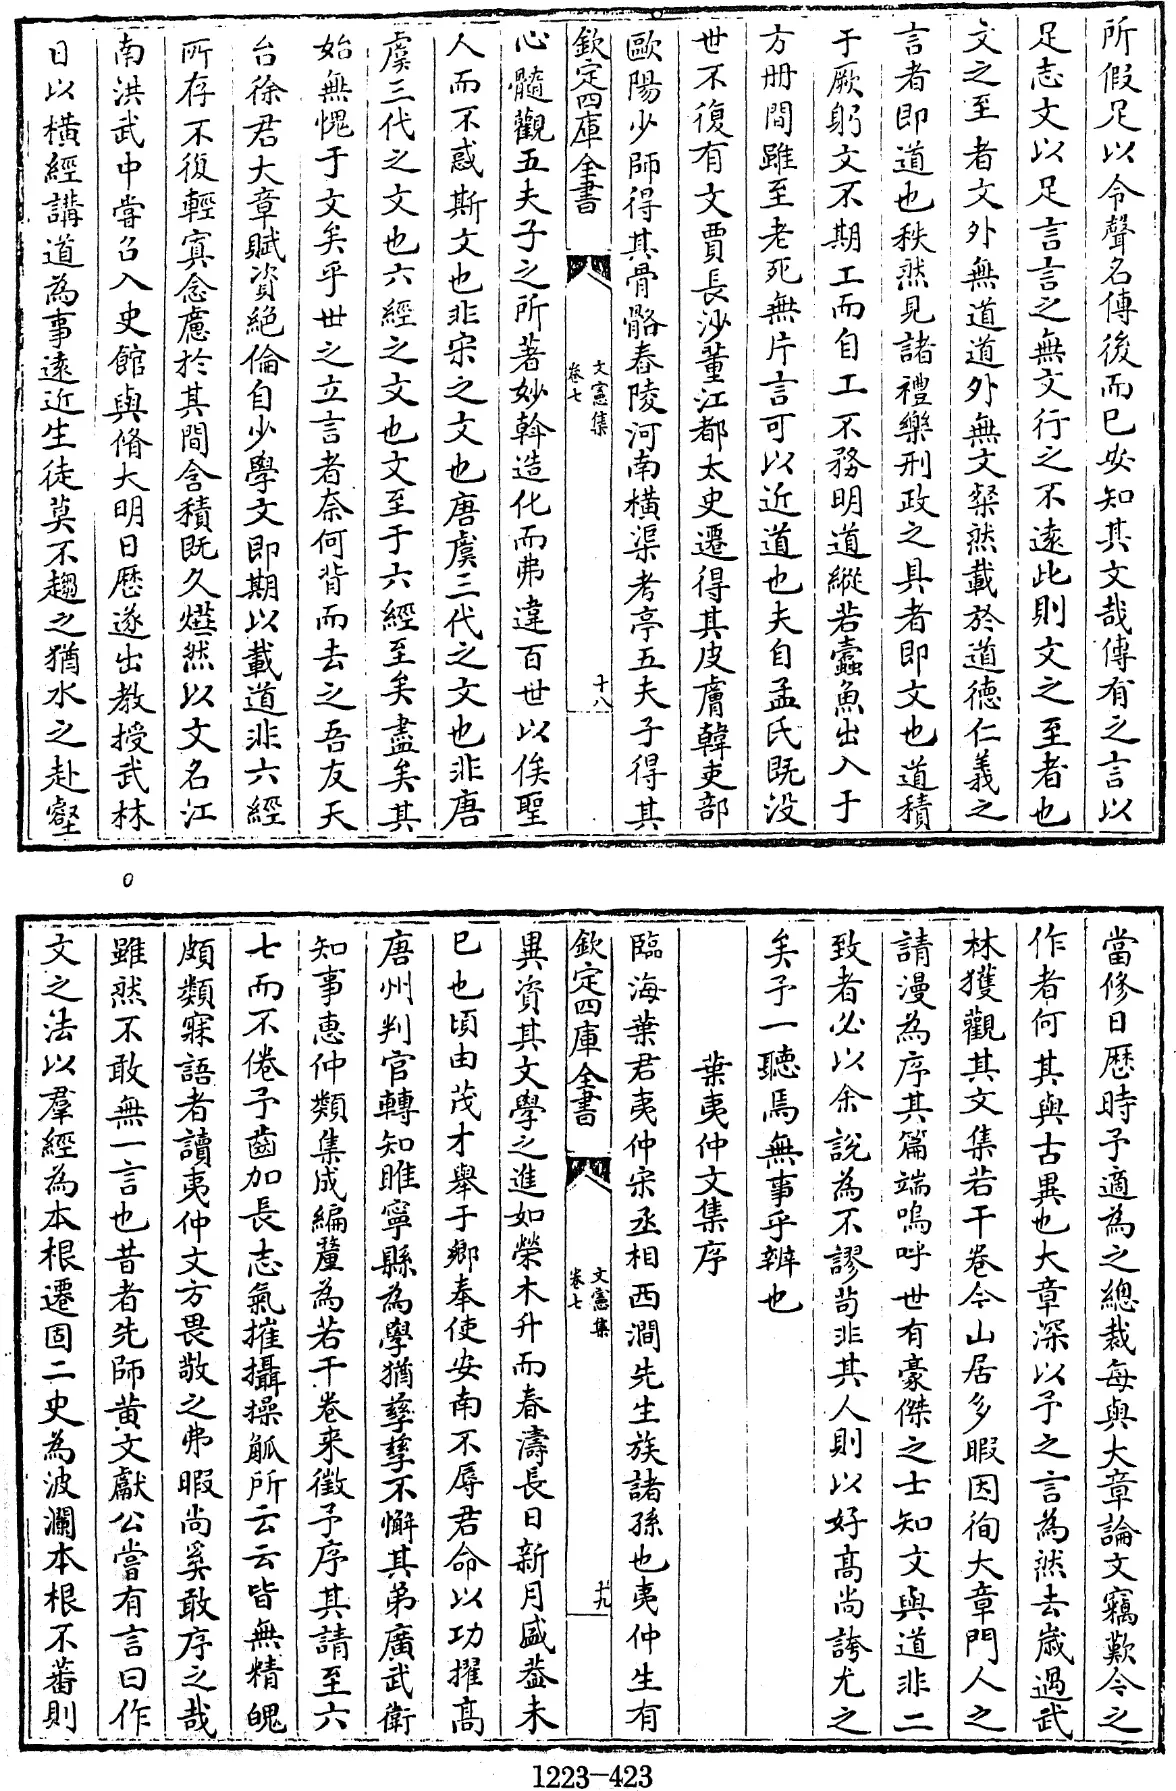 所假足以令聲名傳後而已安知其文哉傳有之言以
足志文以足言言之無文行之不遠此則文之至者也
文之至者文外無道道外無文粲然載於道德仁義之
言者即道也秩然見諸禮樂刑政之具者即文也道積
于厥躬文不期工而自工不務明道縱若蠹魚出入于
方冊間雖至老死無片言可以近道也夫自孟氏既没
世不復有文賈長沙董江都太史遷得其皮膚韓吏部
歐陽少師得其骨骼舂陵河南橫渠考亭五夫子得其
欽定四庫全書
文憲集
卷七
十八
心髓觀五夫子之所著妙斡造化而弗違百世以俟聖
人而不惑斯文也非宋之文也唐虞三代之文也非唐
虞三代之文也六經之文也文至于六經至矣盡矣其
始無愧于文矣乎世之立言者奈何背而去之吾友天
台徐君大章賦資絶倫自少學文即期以載道非六經
所存不復輕寘念慮於其間含積既久爗然以文名江
南洪武中嘗召入史館與脩大明日厯遂出教授武林
日以橫經講道為事遠近生徒莫不趨之猶水之赴壑
當修日厯時予適為之總裁每與大章論文竊歎今之
作者何其與古異也大章深以予之言為然去歲過武
林獲觀其文集若干卷今山居多暇因徇大章門人之
請漫為序其篇端嗚呼世有豪傑之士知文與道非二
致者必以余說為不謬茍非其人則以好髙尚誇尤之
矣予一聽焉無事乎辨也
葉夷仲文集序
臨海葉君夷仲宋丞相西澗先生族諸孫也夷仲生有
欽定四庫全書
文憲集
卷七
十九
異資其文學之進如榮木升而春濤長日新月盛葢未
已也頃由茂才舉于鄉奉使安南不辱君命以功擢髙
唐州判官轉知睢寧縣為學猶孳孳不懈其弟廣武衛
知事惠仲類集成編釐為若干卷来徵予序其請至六
七而不倦予齒加長志氣摧攝操觚所云云皆無精魄
頗類寐語者讀夷仲文方畏敬之弗暇尚奚敢序之哉
雖然不敢無一言也昔者先師黄文獻公嘗有言曰作
文之法以羣經為本根遷固二史為波瀾本根不蕃則
1223-423